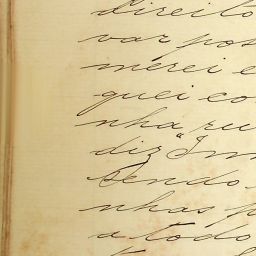 direito
var pos
merei e
quei co
nha ru
diz "Im
Sendo
nhas p
a todo